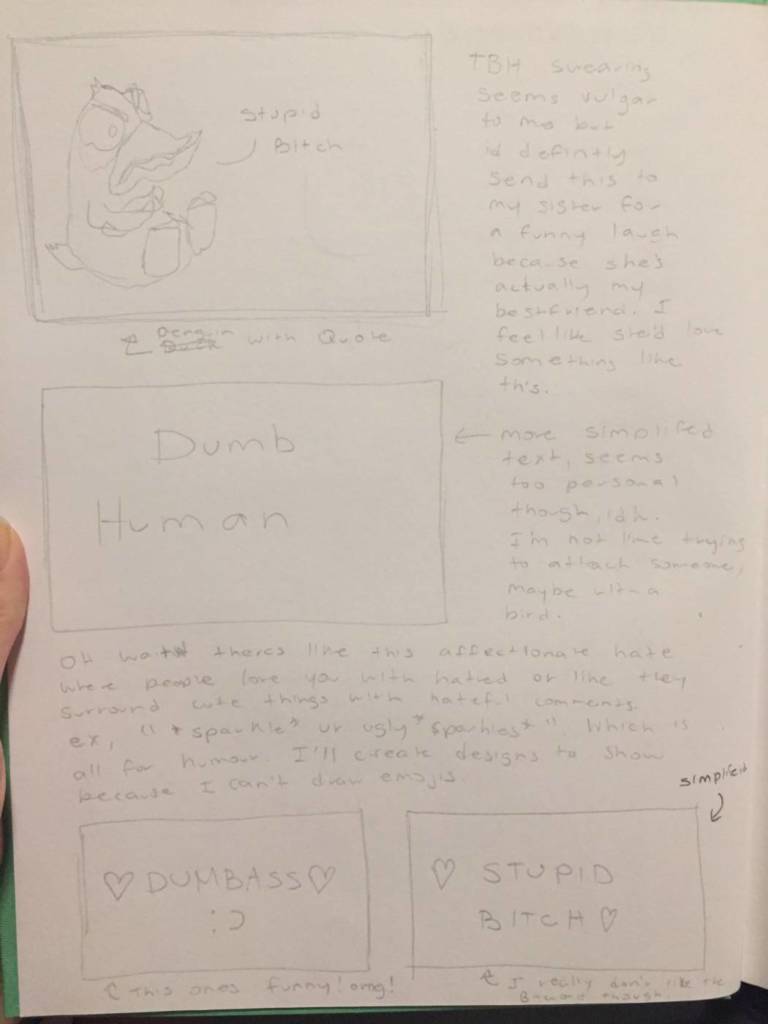 Stupid
Bitch
TBH swearing
seems vulgar
to me but
id defintly
send this to
my sister for
a funny laugh
because she's
actually my
bestfriend. I
feel like she'd love
something like
this.
Penguin
Duck with Quote
Dumb
Human
← more simplifed
text, seems
too personal
though, idk.
I'm not like trying
to attack someone,
maybe with a
bird.
Oh wait theres like this affectionate hate
where people love you with hatred or like they
surround cute things with hateful comments.
ex, "*sparkle* ur ugly *sparkles*". Which is
all for humour. I'll create designs to show
because I can't draw emojis.
simplifed
♡ DUMBASS ♡
:)
♡ STUPID
BITCH ♡
This ones funny! omg!
I really don't like the
B word though.